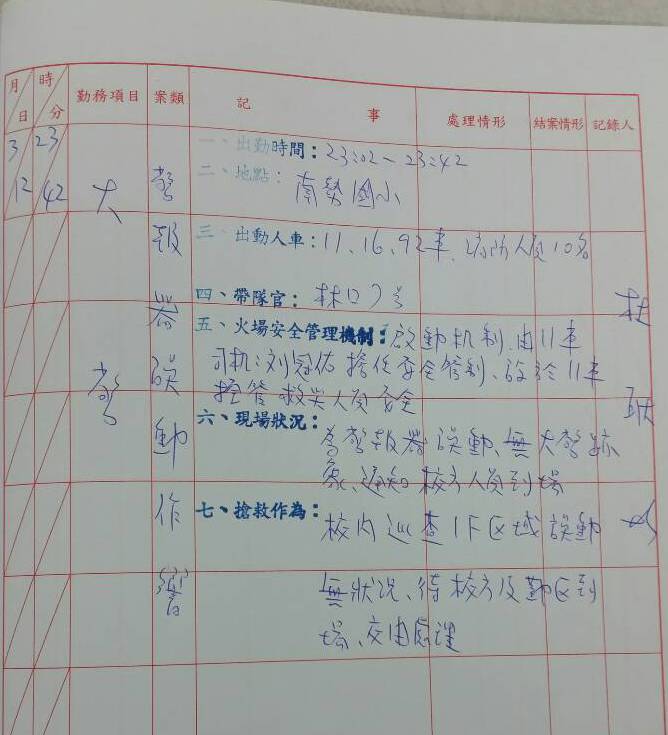 月 日 時 分 勤務項目 案類 記 事 處理情形 結案情形 記錄人
3 12 23 42
火警
警報器誤動作響
一、出勤時間：23:02～23:42
二、地點：南勢國小
三、出動人車：11、16、92車、人員10名
四、帶隊官：林口7号
五、火場安全管理機制：啟動机制、由11車
司机：刘冠佑擔任安全管制、設於11車
控管救災人員安全
六、現場狀況：
為警報器誤動、無火警跡
象、通知校方人員到場
七、搶救作為：
校內巡查1F区域誤動
無狀況、待校方及勤区到
場、交由處理
杜